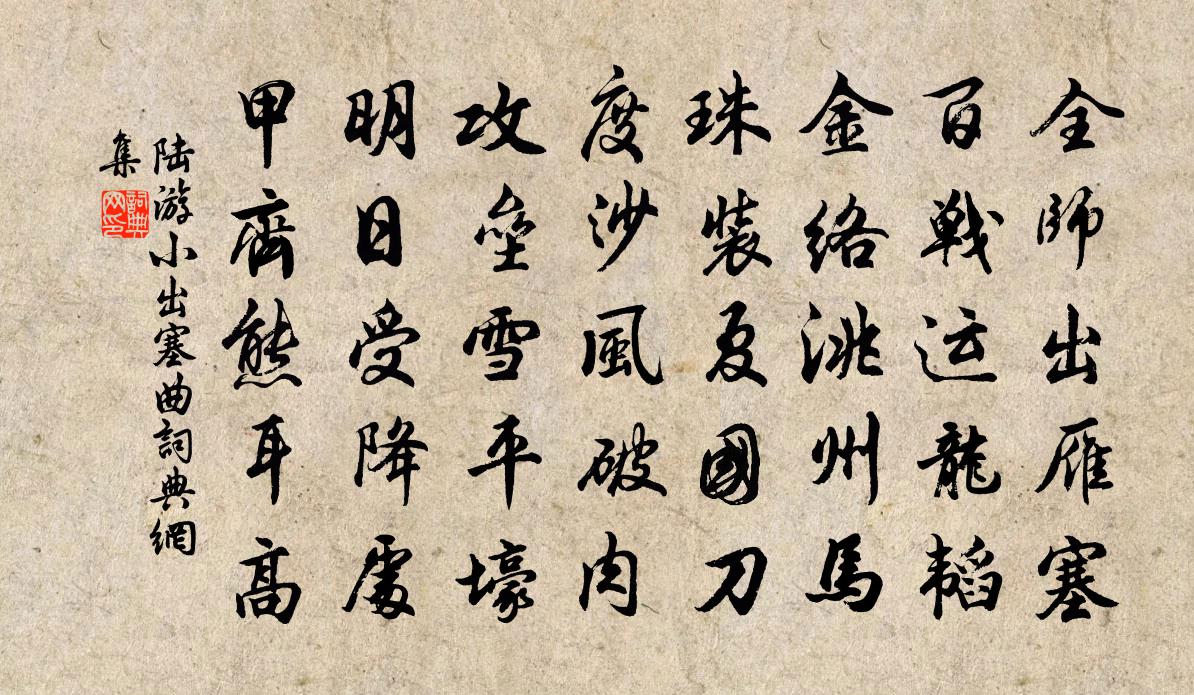 全師出雁塞
百戦运龍韬
金络洮州馬
珠装夏國刀
度沙風破肉
攻壘雪平壕
明日受降處
甲齊熊耳高
陆游小出塞曲詞典網
集
詞典
网印